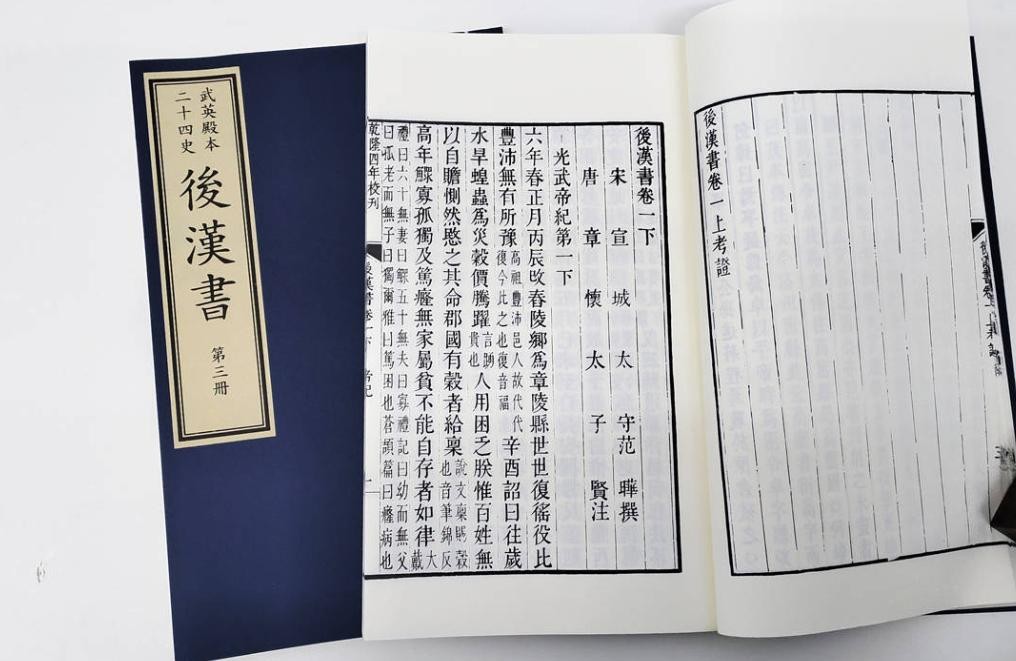 武英殿本
二十四史
後漢書
第三冊
後漢書卷一上考證
後漢書卷一下
宋宣城太守范曄撰
唐章懷太子賢注
光武帝紀第一下
六年春正月丙辰改舂陵鄉爲章陵縣世世復徭役比
豐沛無有所豫高祖豐沛邑人故代代
復今此之也復音福辛酉詔曰往歲
水旱蝗蟲爲災穀價騰躍言踴
貴也人用困乏朕惟百姓無
以自贍惻然愍之其命郡國有穀者給稟說文稟賜穀
也音筆錦反
高年鰥寡孤獨及篤癃無家屬貧不能自存者如律大
戴
禮曰六十無妻曰鰥五十無夫曰寡禮記曰幼而無父
曰孤老而無子曰獨爾雅曰篤困也蒼頡篇曰癃病也
乾隆四年校刊
後漢書卷一下